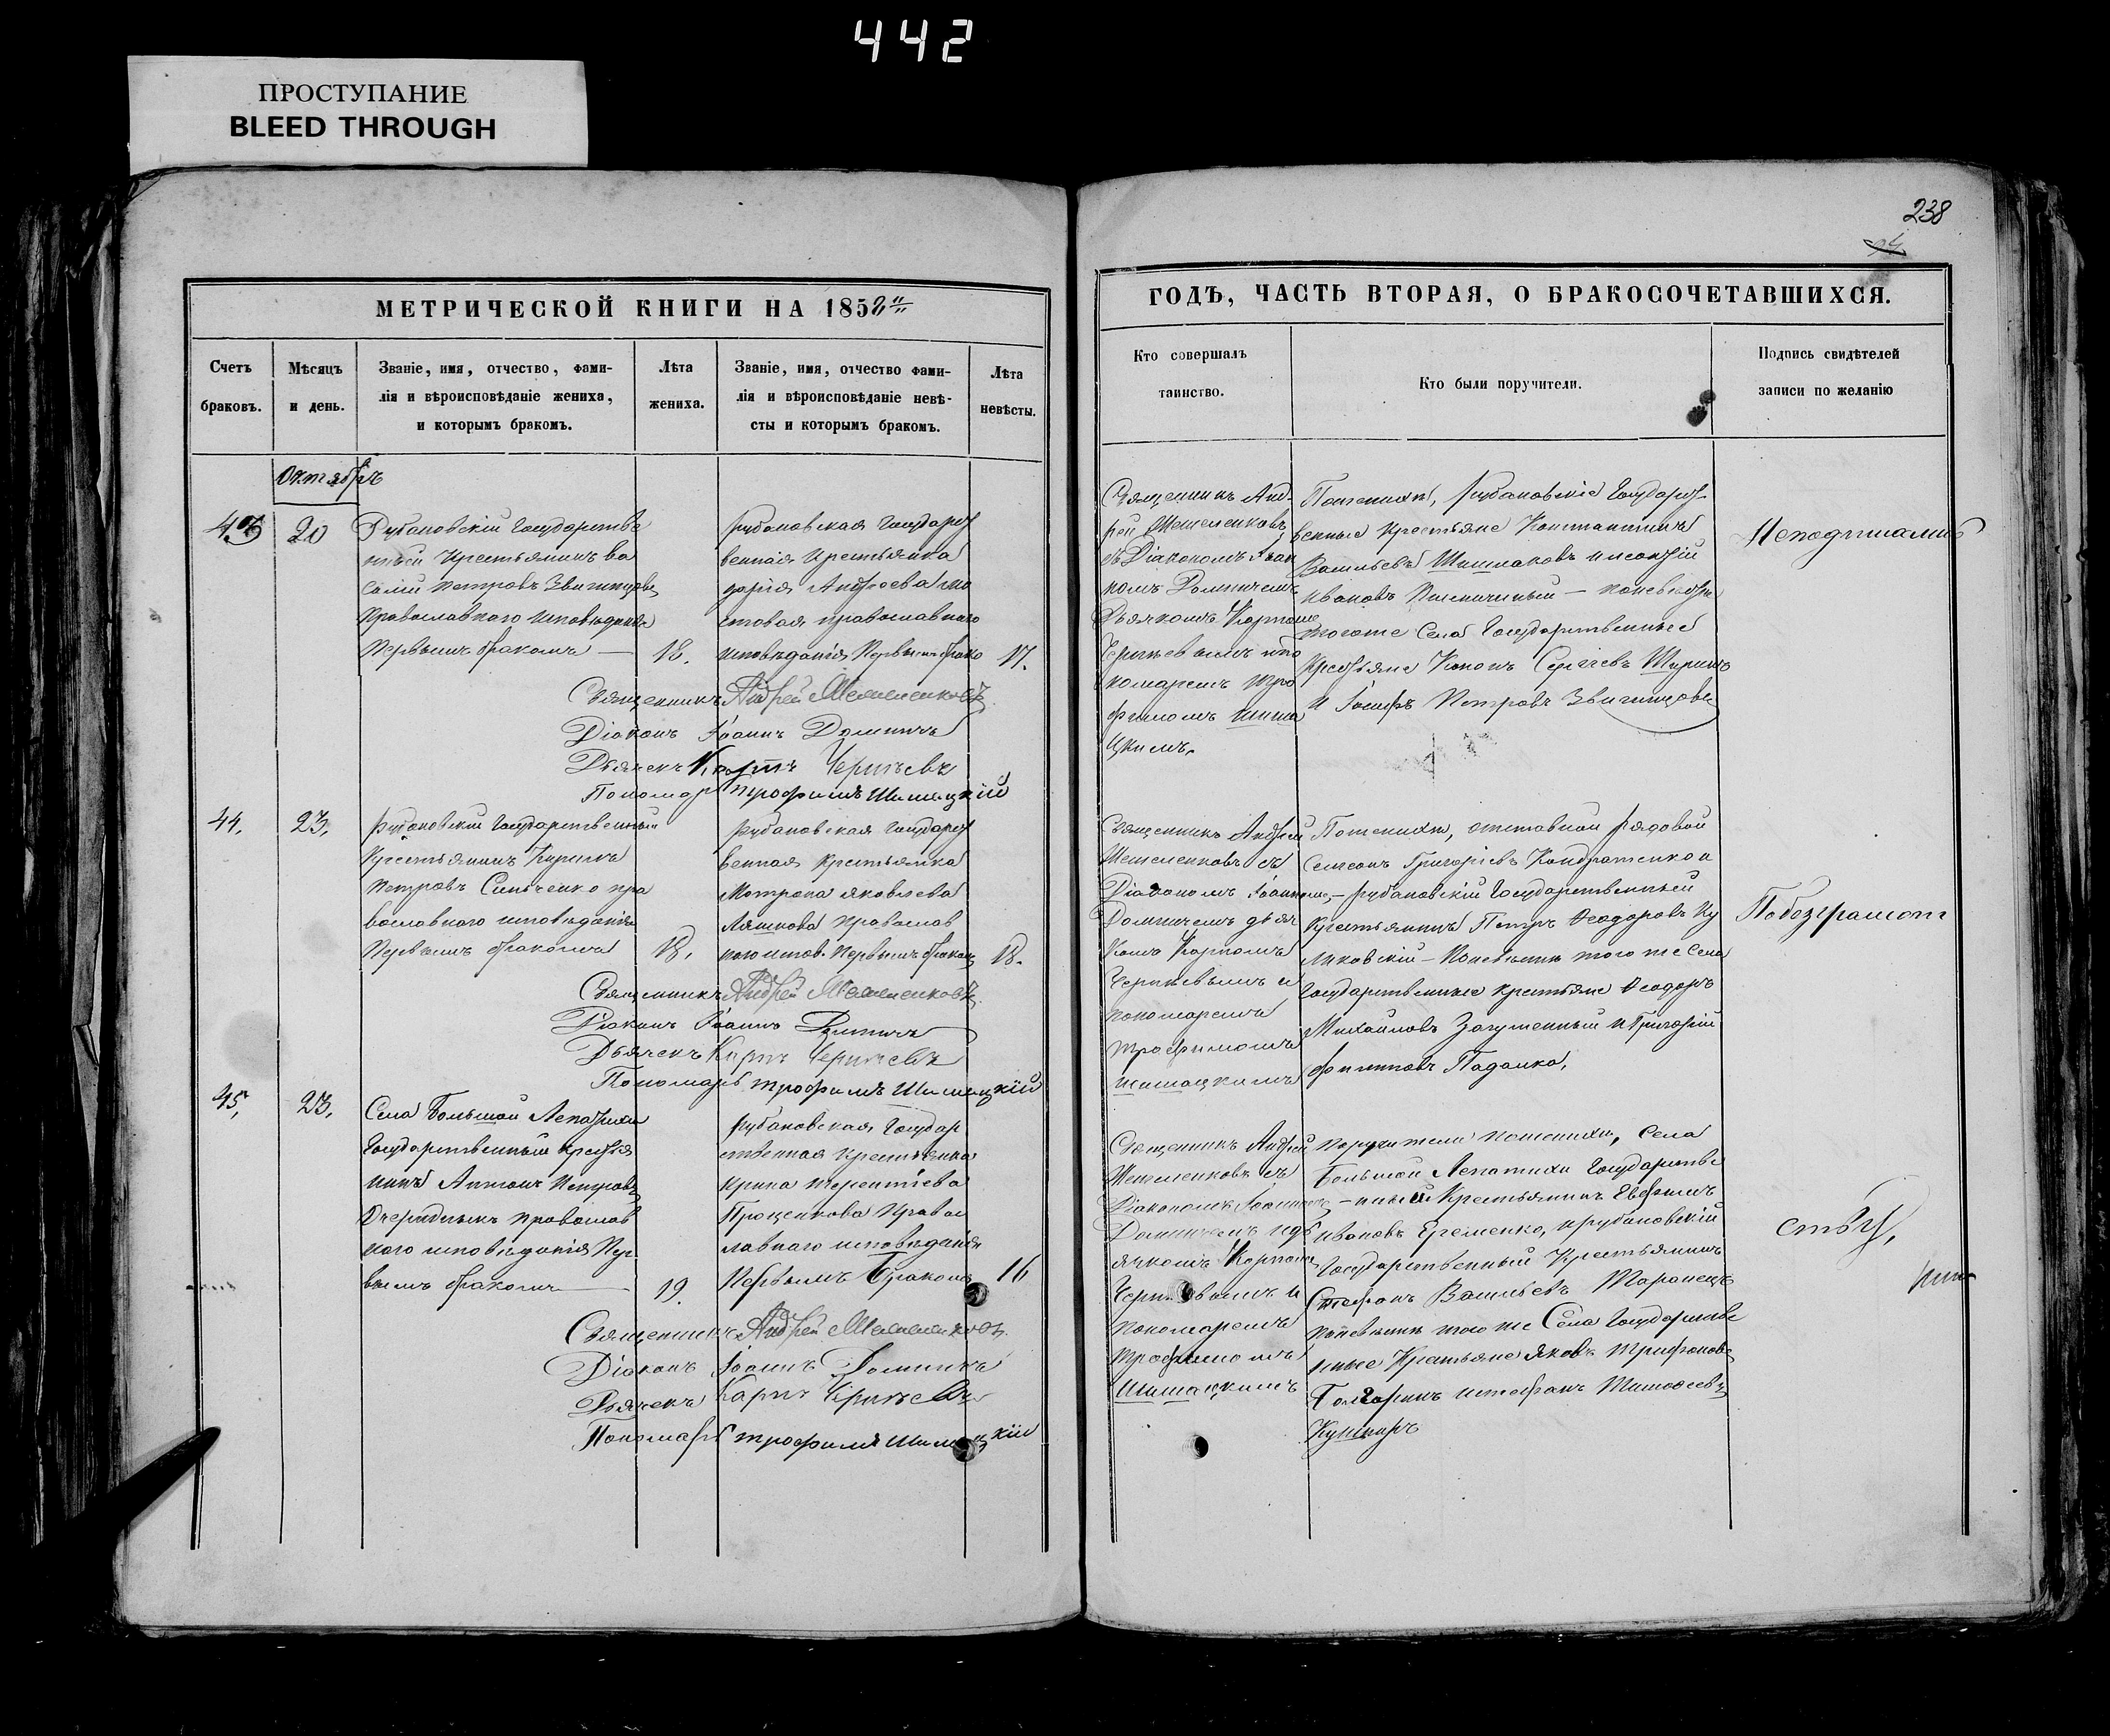 442
ПРОСТУПАНИЕ
BLEED THROUGH
238
МЕТРИЧЕСКОЙ КНИГИ НА 1858й
Счетъ браковъ.
Мѣсяцъ и день.
Званіе, имя, отчество, фами-
лія и вѣроисповѣданіе жениха,
и которымъ бракомъ.
Лѣта жениха.
Званіе, имя, отчество фами-
лія и вѣроисповѣданіе невѣ-
сты и которымъ бракомъ.
Лѣта невѣсты.
Октябрь
43
20
Рубановскій Государстве
ный Крестьянинъ Ва
силій Петровъ
Православнаго исповѣданія
Первымъ бракомъ
18.
Рубановская Государст
венная Крестьянка
Дарія Андреева
православнаго
исповѣданія Первымъ брако
17.
Священникъ Андрей Шемеленковъ
Діаконъ Іоаннъ Доминичъ
Дьячекъ Карпъ Черничевъ
Пономарь Трофимъ Шишацкій
44.
23.
Рубановскій Государственный
Крестьянинъ Кирилъ
Петровъ Сильченко пра
вославнаго исповѣданія
Первымъ бракомъ
18.
Рубановская Государст
венная крестьянка
Мотрона Яковлева
Ляшкова Православ
наго испов. Первымъ бракомъ
18.
Священникъ Андрей Шемеленковъ
Діаконъ Іоаннъ Доминичъ
Дьячекъ Карпъ Черничевъ
Пономарь Трофимъ Шишацкій
45.
23.
Села Большой Лепатихи
Государственный Крестья
нинъ Антонъ Петровъ
Православ
наго исповѣданія Пер
вымъ бракомъ
19.
Рубановская Государ
ственная Крестьянка
Ирина Терентіева
Проценкова Правос
лавнаго исповѣданія
Первымъ Бракомъ
16
Священникъ Андрей Шемеленковъ
Діаконъ Іоаннъ Доминичъ
Дьячекъ Карпъ Черничевъ
Пономарь Трофимъ Шишацкій
ГОДЪ, ЧАСТЬ ВТОРАЯ, О БРАКОСОЧЕТАВШИХСЯ.
Кто совершалъ таинство.
Кто были поручители.
Подпись свидѣтелей
записи по желанію
Священникъ Анд-
рей Шемеленковъ
съ Діакономъ Іоан
номъ Доминичемъ
Дьячкомъ Карпомъ
Черничевымъ и по
номаремъ Тро
фимомъ Шиша
цкимъ.
По женихѣ, Рубановскіе Государст-
венные Крестьяне Константинъ
Васильевъ Шишлаковъ и
Ивановъ Пшеничный — по невѣстѣ
тогоже Села Государственные
Крестьяне Кононъ Сергіевъ
и Іосифъ Петровъ
Неподписались
Священникъ Андрей
Шемеленковъ съ
Діакономъ Іоанномъ
Доминичемъ дьяч
комъ Карпомъ
Черничевымъ и
пономаремъ
Трофимомъ
Шишацкимъ
По женихѣ, отставной рядовой
Семеонъ Григоріевъ Кондратенко и
Рубановскій Государственный
Крестьянинъ Петръ Ѳеодоровъ Ку
ликовскій — По невѣстѣ того же Села
Государственные крестьяне Ѳеодоръ
Михайловъ и Григорій
Филиповъ Падалка,
По безграмот
Священникъ Андрей
Шемеленковъ съ
Діакономъ Іоанномъ
Доминичемъ и дь
ячкомъ Карпомъ
Черничевымъ и
Пономаремъ
Трофимомъ
Шишацкимъ
Поручители по женихѣ, Села
Большой Лепатихи Государстве
нный Крестьянинъ Евфимъ
Ивановъ Еременко, и Рубановскій
Государственный Крестьянинъ
Стефанъ Васильевъ Таранецъ
по невѣстѣ того же Села Государстве
нные Крестьяне Яковъ Трифоновъ
и Стефанъ Тимоѳеевъ
Кушниръ
ству,